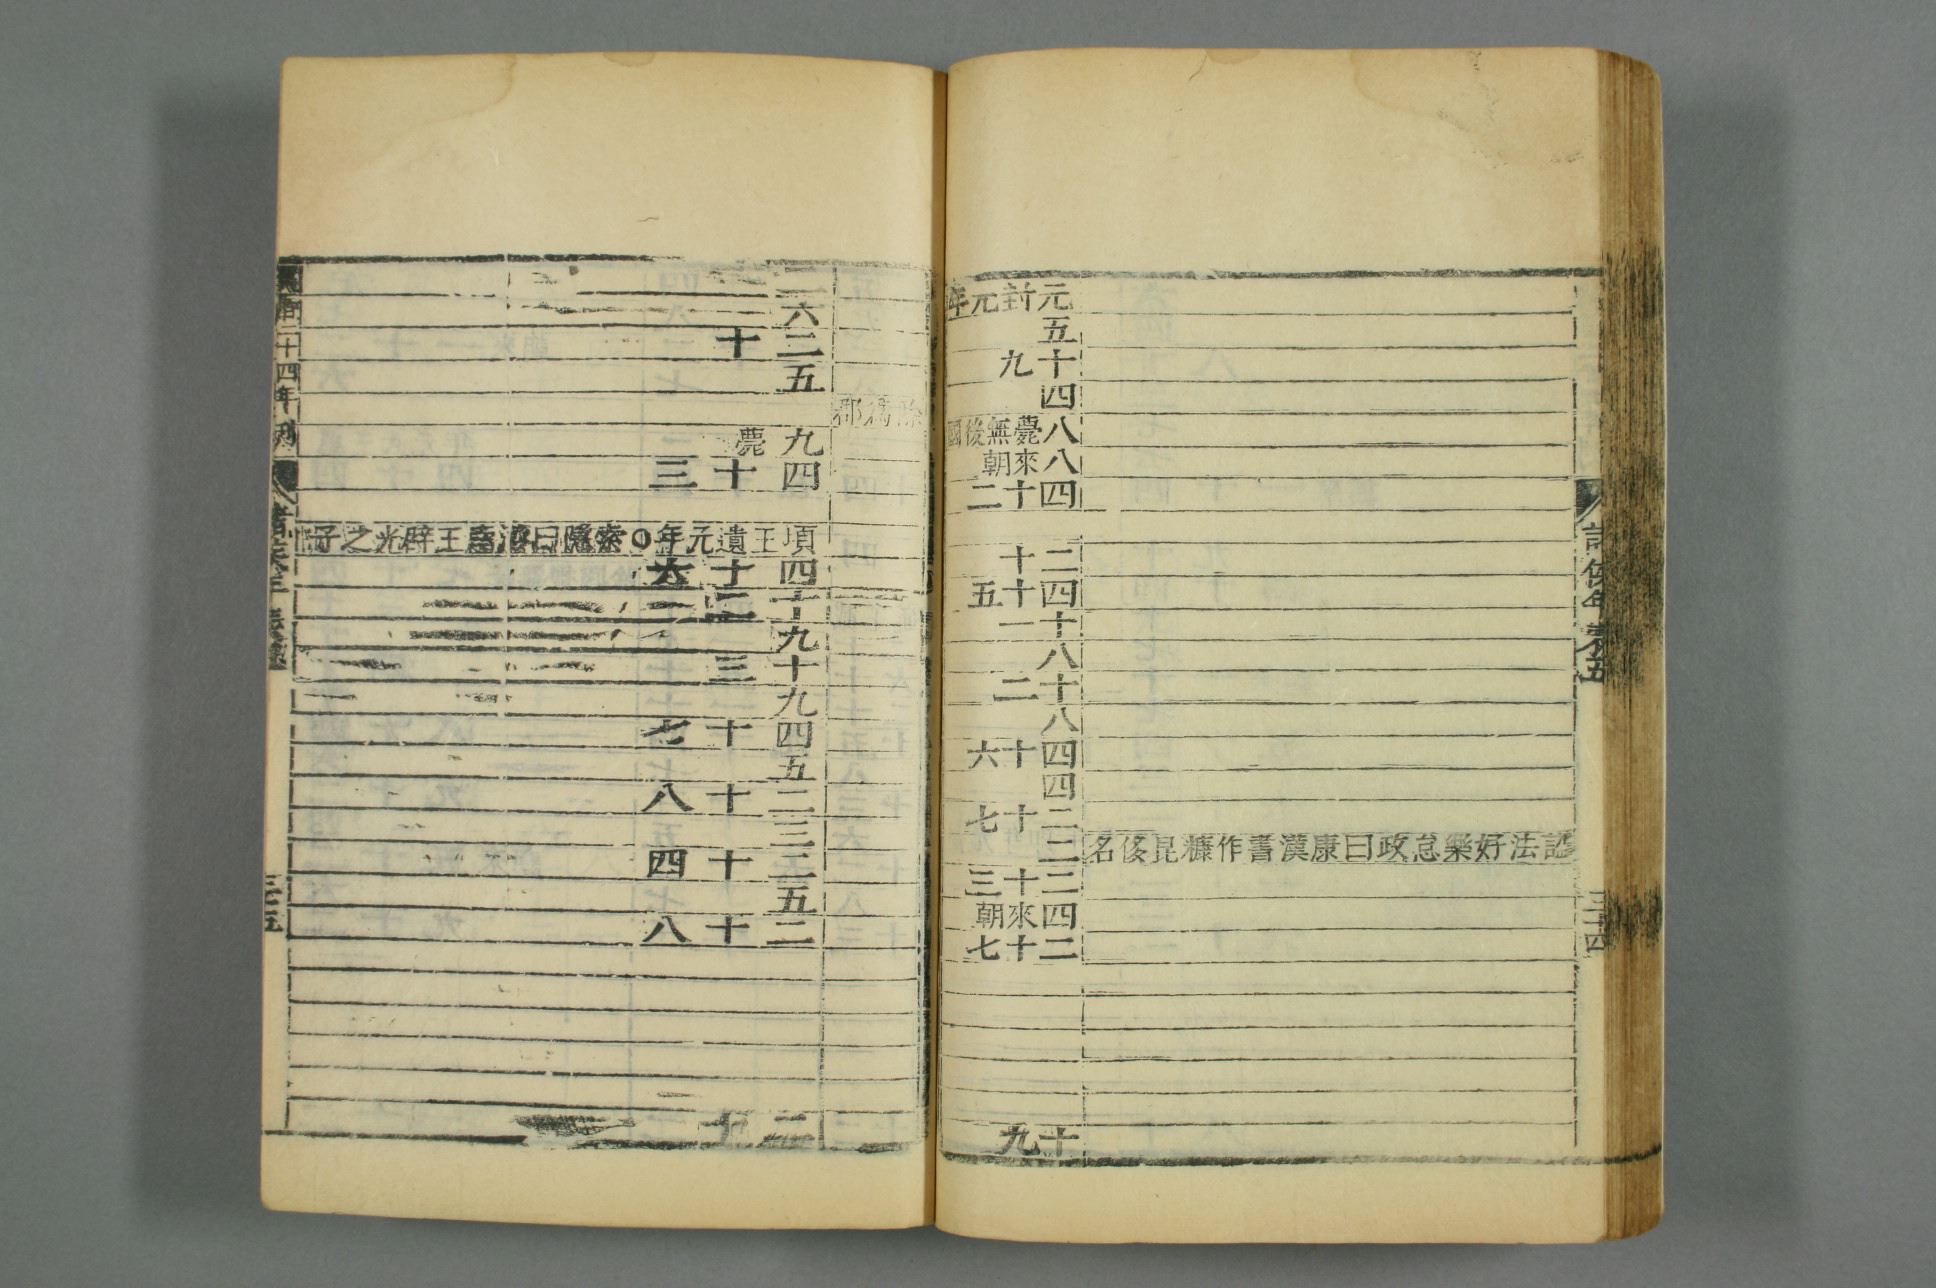 諸侯年表五
三十四
諡法好樂怠政曰康漢書作糠昆侈名
元封元年
五
十九
四
八薨無後國
八來朝
四十二
二十
四十五
十一
八
十二
八
四十六
四
二十七
三
二十三
四來朝
二十七
十九
除為郡
六
二十
五
九薨
四十三
頃王遺元年○索隱曰濟南王辟光之子
四十六
十二
九
十三
九
四十七
五
二十八
三
二十四
五
二十八
二十
二十四年刊